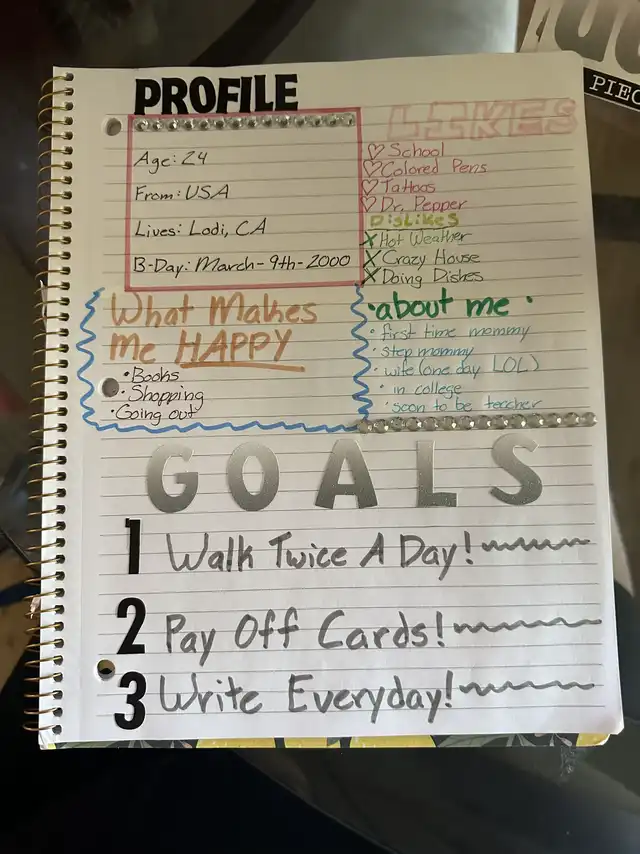 PROFILE
Age: 24
From: USA
Lives: Lodi, CA
B-Day: March-9th-2000
LIKES
♡ School
♡ Colored Pens
♡ Tattoos
♡ Dr. Pepper
Dislikes
X Hot Weather
X Crazy House
X Doing Dishes
What Makes
me HAPPY
• Books
• Shopping
• Going out
• about me •
• first time mommy
• step mommy
• wife (one day LOL)
• in college
• soon to be teacher
GOALS
1 Walk Twice A Day!
2 Pay Off Cards!
3 Write Everyday!